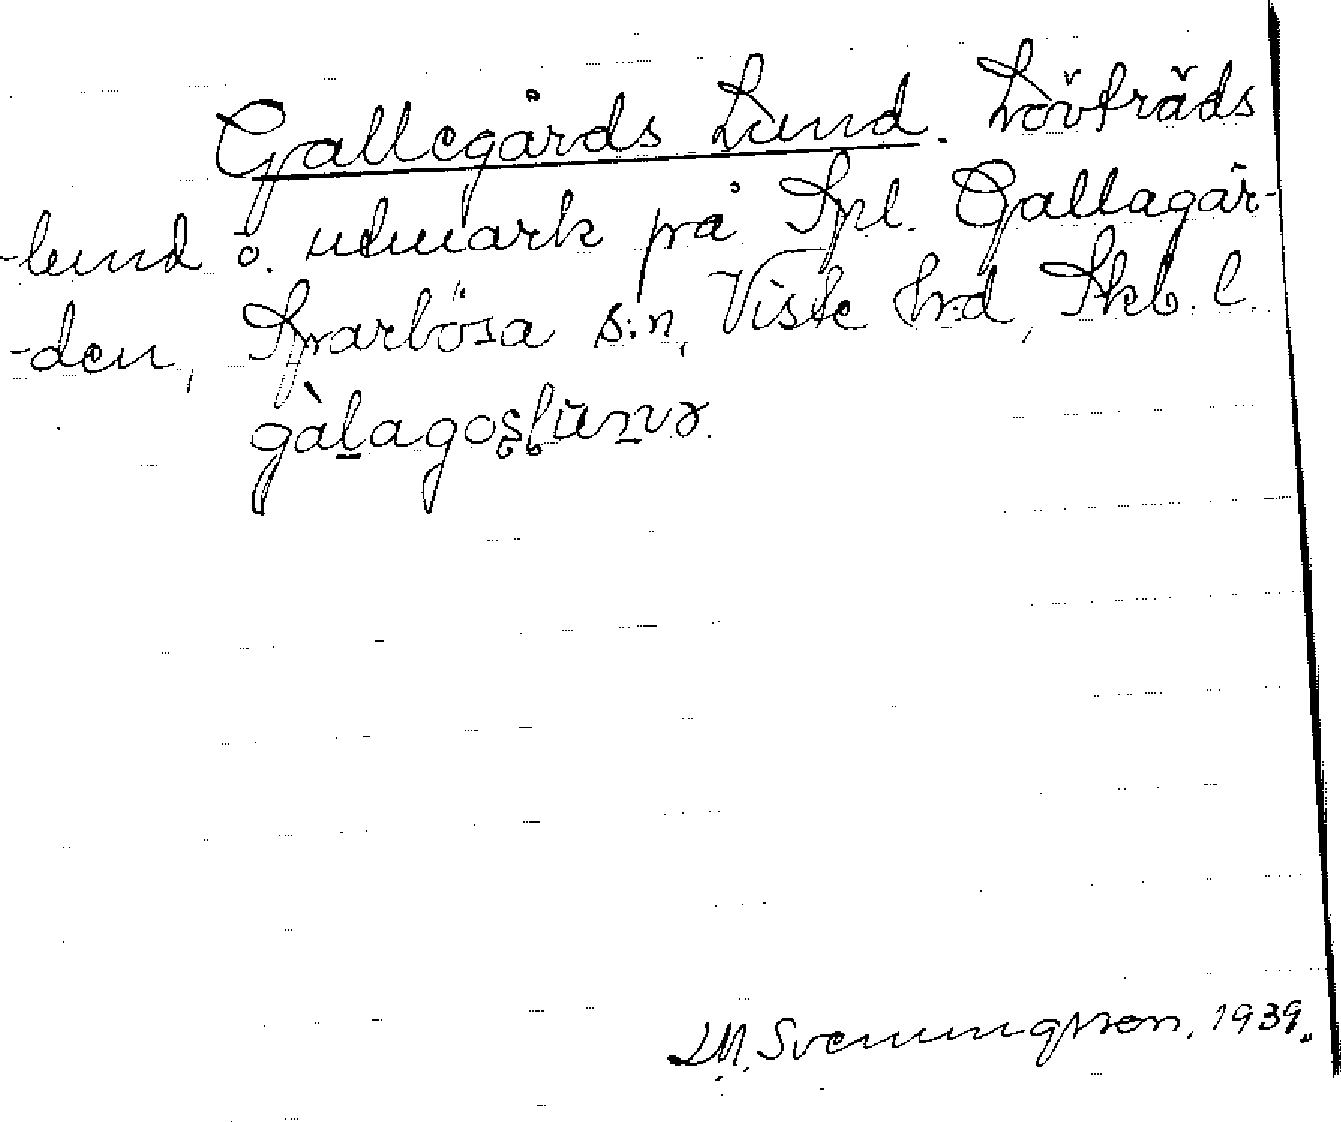 Gallegårds Lund. Lövträds
-lund o. utmark på Spl. Gallagår-
-den, Sparlösa s:n, Viste hrd, Skb. l.
gàḷagoʂḷūnvə.
L.M. Svenungsson, 1939.